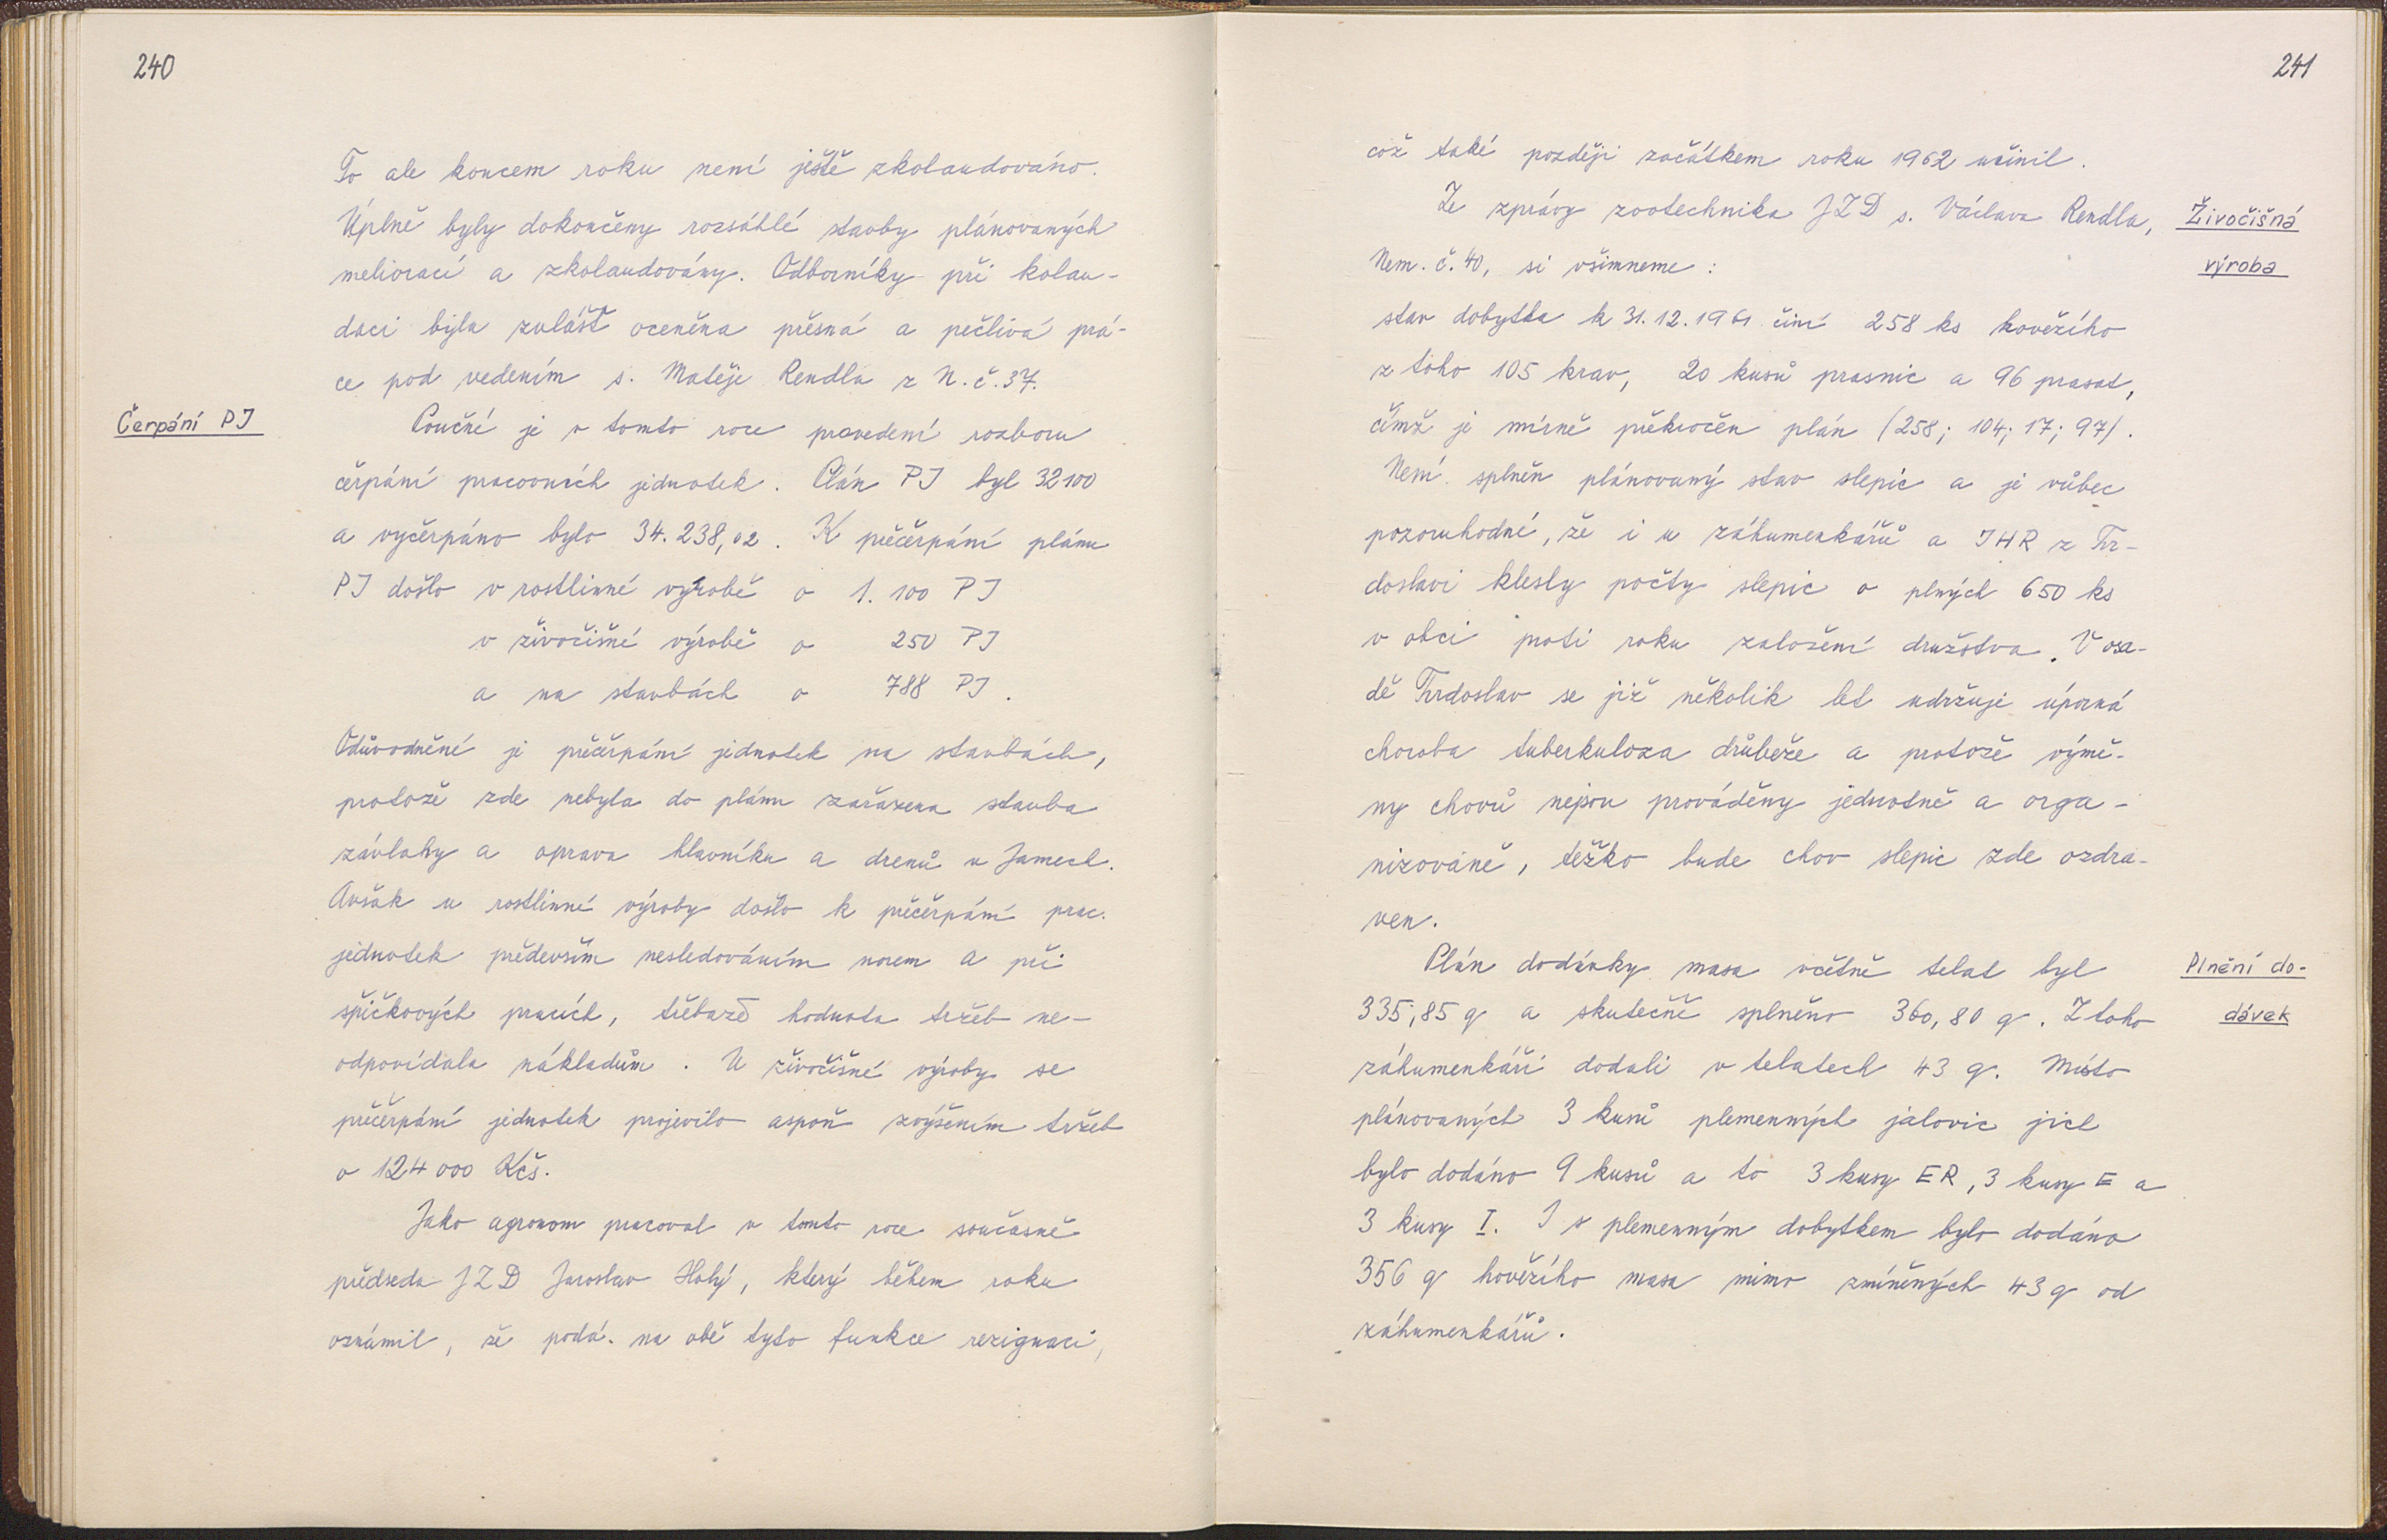 240
To ale koncem roku není ještě zkolaudováno.
Úplně byly dokončeny rozsáhlé stavby plánovaných
meliorací a zkolaudovány. Odborníky při kolau-
daci byla zvlášť oceněna přesná a pečlivá prá-
ce pod vedením s. Matěje Rendla z N. č. 37.
Čerpání PJ
Poučné je v tomto roce provedení rozboru
čerpání pracovních jednotek. Plán PJ byl 32100
a vyčerpáno bylo 34.238,02. K přečerpání plánu
PJ došlo v rostlinné výrobě o 1.100 PJ
v živočišné výrobě o 250 PJ
a na stavbách o 788 PJ.
Odůvodněné je přečerpání jednotek na stavbách,
protože zde nebyla do plánu zařazena stavba
závlahy a oprava hlavníku a drenů v Jamech.
Avšak u rostlinné výroby došlo k přečerpání prac.
jednotek především nesledováním norem a při
špičkových pracích, třebaže hodnota tržeb ne-
odpovídala nákladům. U živočišné výroby se
přečerpání jednotek projevilo aspoň zvýšením tržeb
o 124 000 Kčs.
Jako agronom pracoval v tomto roce současně
předseda JZD Jaroslav Holý, který během roku
oznámil, že podá na obě tyto funkce rezignaci,
241
což také později začátkem roku 1962 učinil.
Ze zprávy zootechnika JZD s. Václava Rendla,
Živočišná
Nem. č. 40, si všimneme:
výroba
stav dobytka k 31.12.1961 činí 258 ks hovězího
z toho 105 krav, 20 kusů prasnic a 96 prasat,
čímž je mírně překročen plán (258; 104; 17; 97).
Není splněn plánovaný stav slepic a je vůbec
pozoruhodné, že i u záhumenkářů a JHR z Tvr-
doslavi klesly počty slepic o plných 650 ks
v obci proti roku založení družstva. V osa-
dě Tvrdoslav se již několik let udržuje úporná
choroba tuberkuloza drůbeže a protože výmě-
ny chovů nejsou prováděny jednotně a orga-
nizovaně, těžko bude chov slepic zde ozdra-
ven.
Plán dodávky masa včetně telat byl
Plnění do-
335,85 q a skutečně splněno 360,80 q. Z toho
dávek
záhumenkáři dodali v telatech 43 q. Místo
plánovaných 3 kusů plemenných jalovic jich
bylo dodáno 9 kusů a to 3 kusy ER, 3 kusy E a
3 kusy I. I s plemenným dobytkem bylo dodáno
356 q hovězího masa mimo zmíněných 43 q od
záhumenkářů.